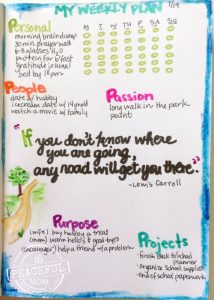 MY WEEKLY PLAN 7/19
Personal M T W TH F SA SU
morning braindump
30 min prayer walk
6-8 glasses H2O
protein for b'fast
gratitude journal
bed by 11pm
People
date w/ hubby
icecream date w/ 14yrold
watch a movie w/ family
Passion
long walk in the park
paint
"If you don't know where
you are going,
any road will get you there."
~Lewis Carroll
Purpose
(wife) buy hubby a treat
(mom) warm hello's & good-byes
(encourager) help a friend w/ a problem
Projects
-finish Back to School
Planner
-organize School supplies
-end of school paperwork
THE
PEACEFUL
MOM